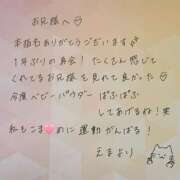 お兄様へ♡
本指名ありがとうございます
1年ぶりの再会!たくさん感じて
くれてるお兄様を見れて良かった♡
今度ベビーパウダーぱふぱふ
してあげるね!笑
私もこまめに運動がんばる!
えまより